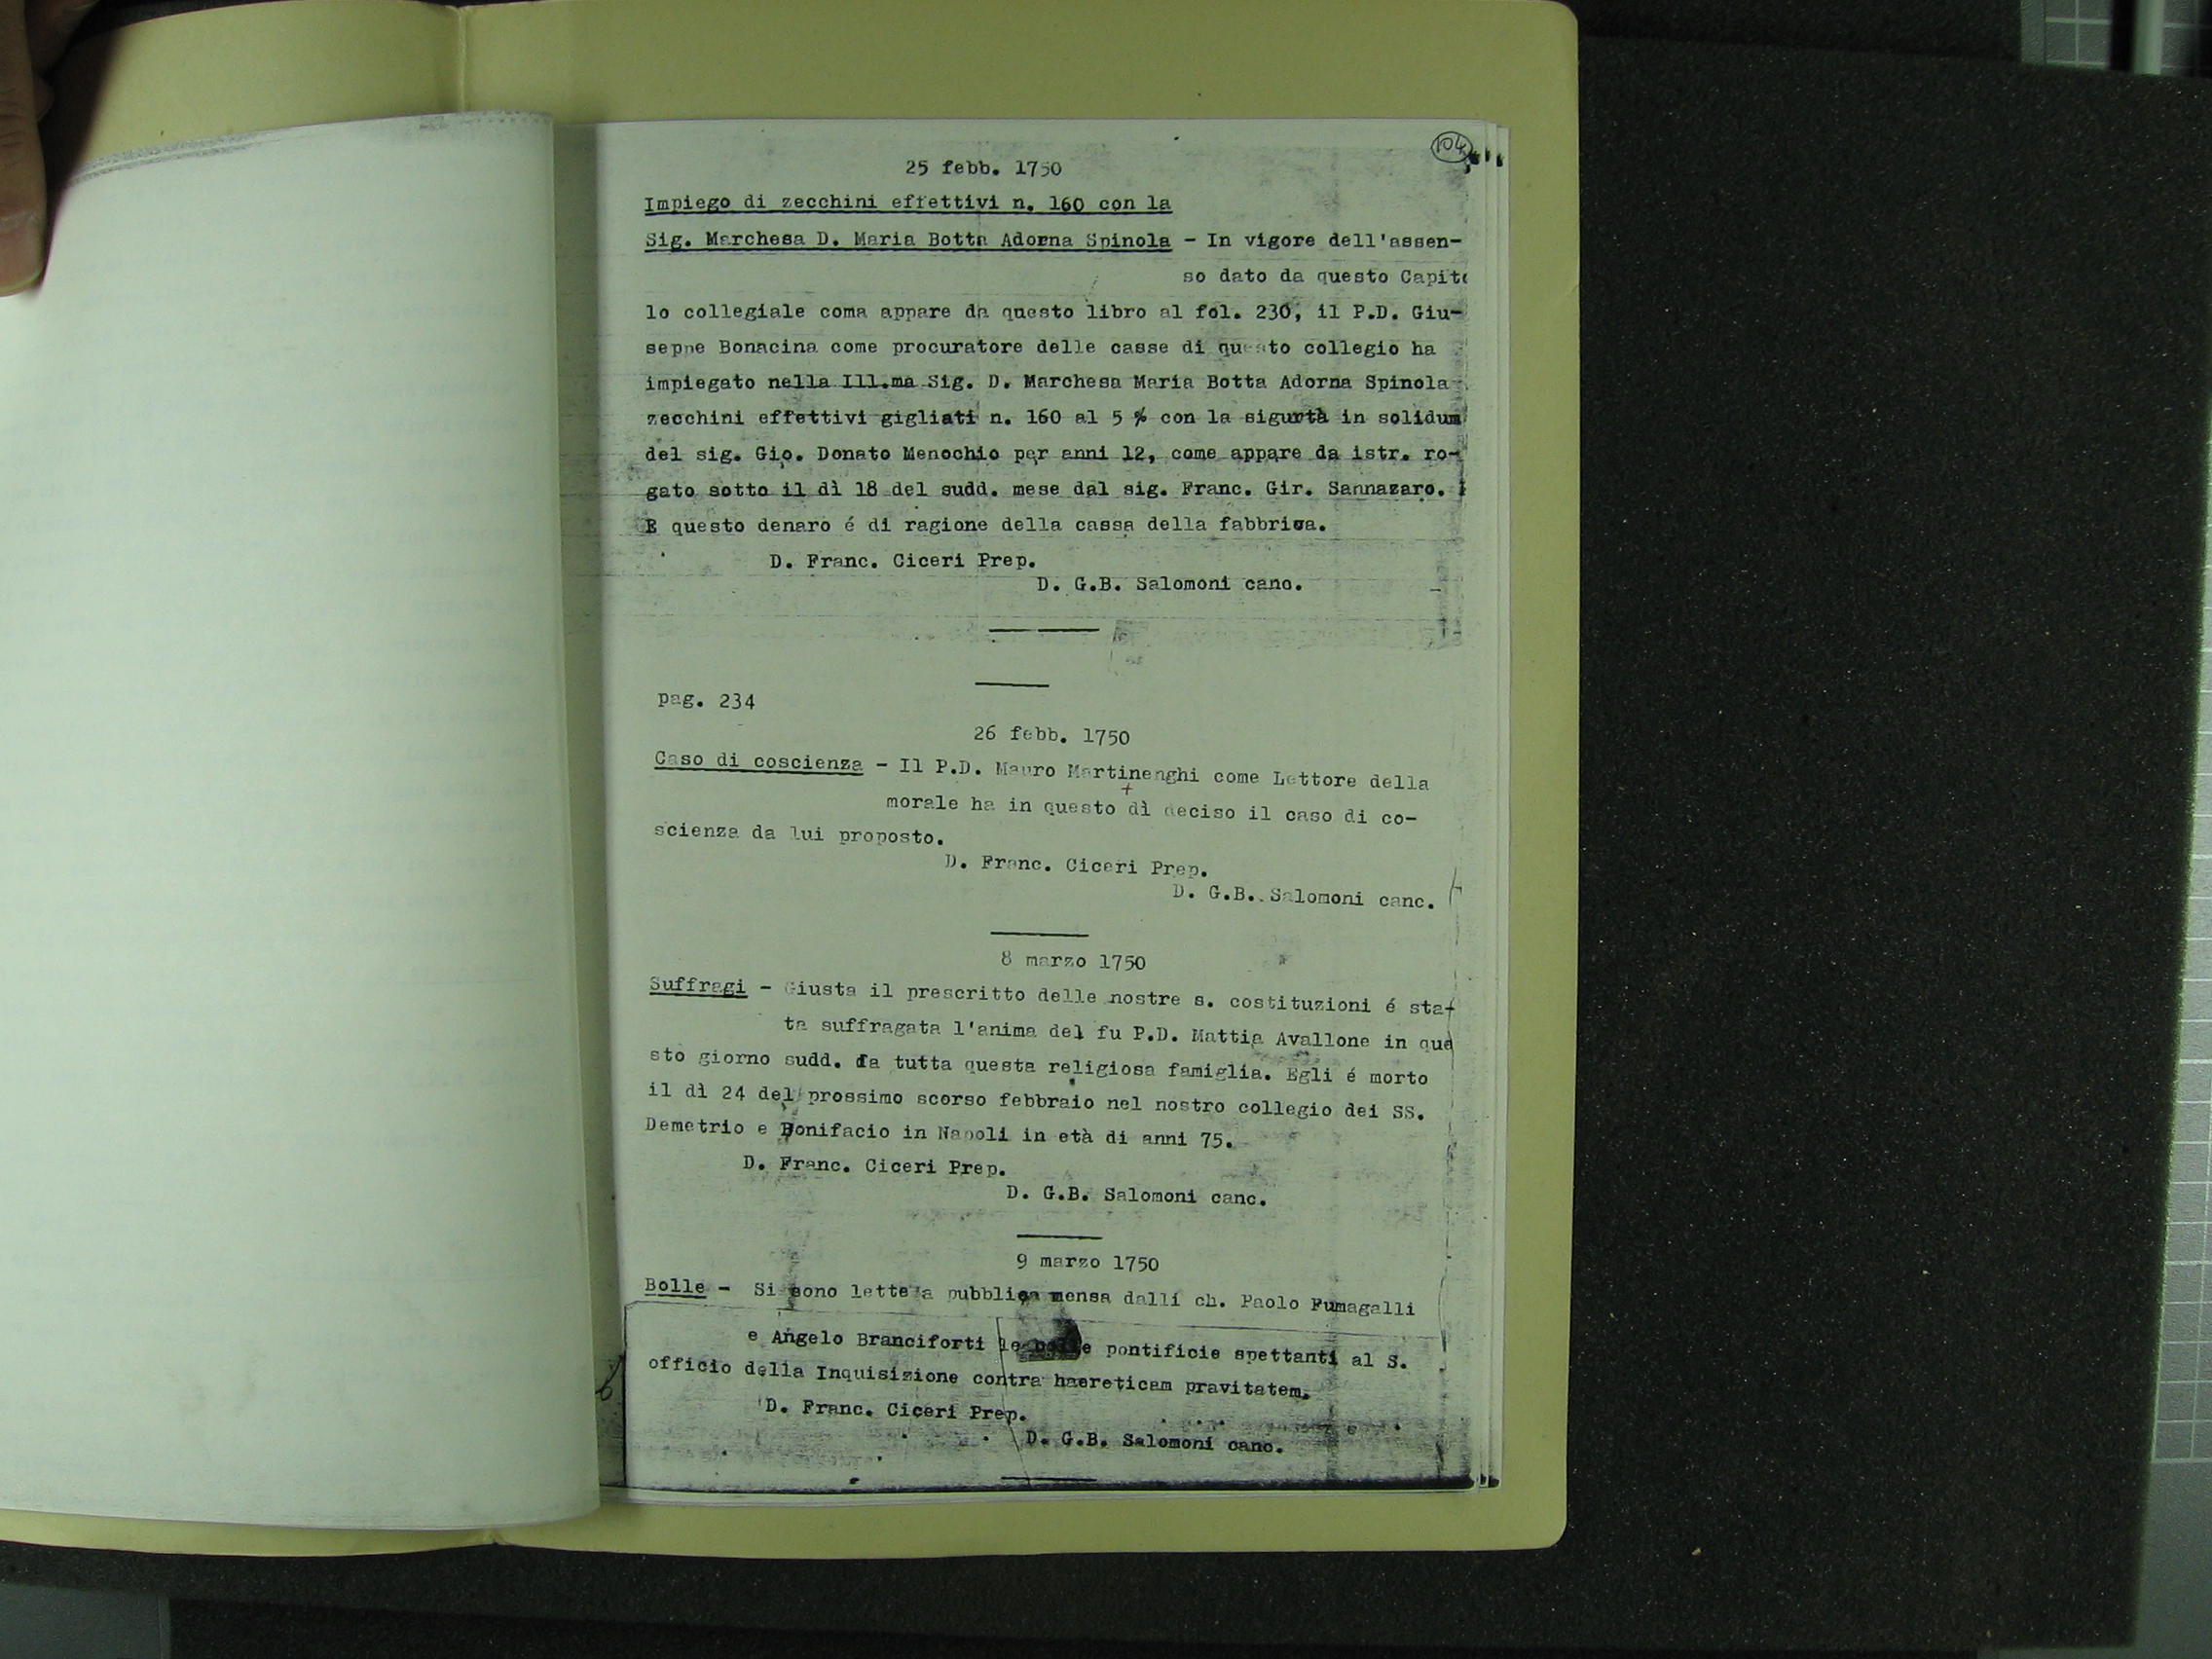 104
25 febb. 1750
Impiego di zecchini effettivi n. 160 con la
Sig. Marchesa D. Maria Botta Adorna Spinola - In vigore dell'assen-
so dato da questo Capito
lo collegiale coma appare da questo libro al fol. 230, il P.D. Giu-
seppe Bonacina come procuratore delle casse di questo collegio ha
impiegato nella Ill.ma Sig. D. Marchesa Maria Botta Adorna Spinola
zecchini effettivi gigliati n. 160 al 5 % con la sigurtà in solidum
del sig. Gio. Donato Menochio per anni 12, come appare da istr. ro-
gato sotto il dì 18 del sudd. mese dal sig. Franc. Gir. Sannazaro.
E questo denaro é di ragione della cassa della fabbrica.
D. Franc. Ciceri Prep.
D. G.B. Salomoni canc.
pag. 234
26 febb. 1750
Caso di coscienza - Il P.D. Mauro Martinenghi come Lettore della
morale ha in questo dì deciso il caso di co-
scienza da lui proposto.
D. Franc. Ciceri Prep.
D. G.B. Salomoni canc.
8 marzo 1750
Suffragi - Giusta il prescritto delle nostre s. costituzioni é sta-
ta suffragata l'anima del fu P.D. Mattia Avallone in que
sto giorno sudd. da tutta questa religiosa famiglia. Egli é morto
il dì 24 del prossimo scorso febbraio nel nostro collegio dei SS.
Demetrio e Bonifacio in Napoli in età di anni 75.
D. Franc. Ciceri Prep.
D. G.B. Salomoni canc.
9 marzo 1750
Bolle - Si sono lette a pubblica mensa dalli ch. Paolo Fumagalli
e Angelo Branciforti le bolle pontificie spettanti al S.
officio della Inquisizione contra haereticam pravitatem.
D. Franc. Ciceri Prep.
D. G.B. Salomoni canc.